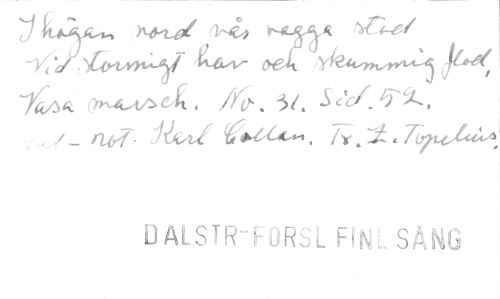 I högan nord vår vagga stod
Vid stormigt hav och skummig flod,
Vasa marsch. No. 31. Sid. 52.
not. Karl Collan. Tr. Z. Topelius.
DALSTR-FORSL FINL SÅNG